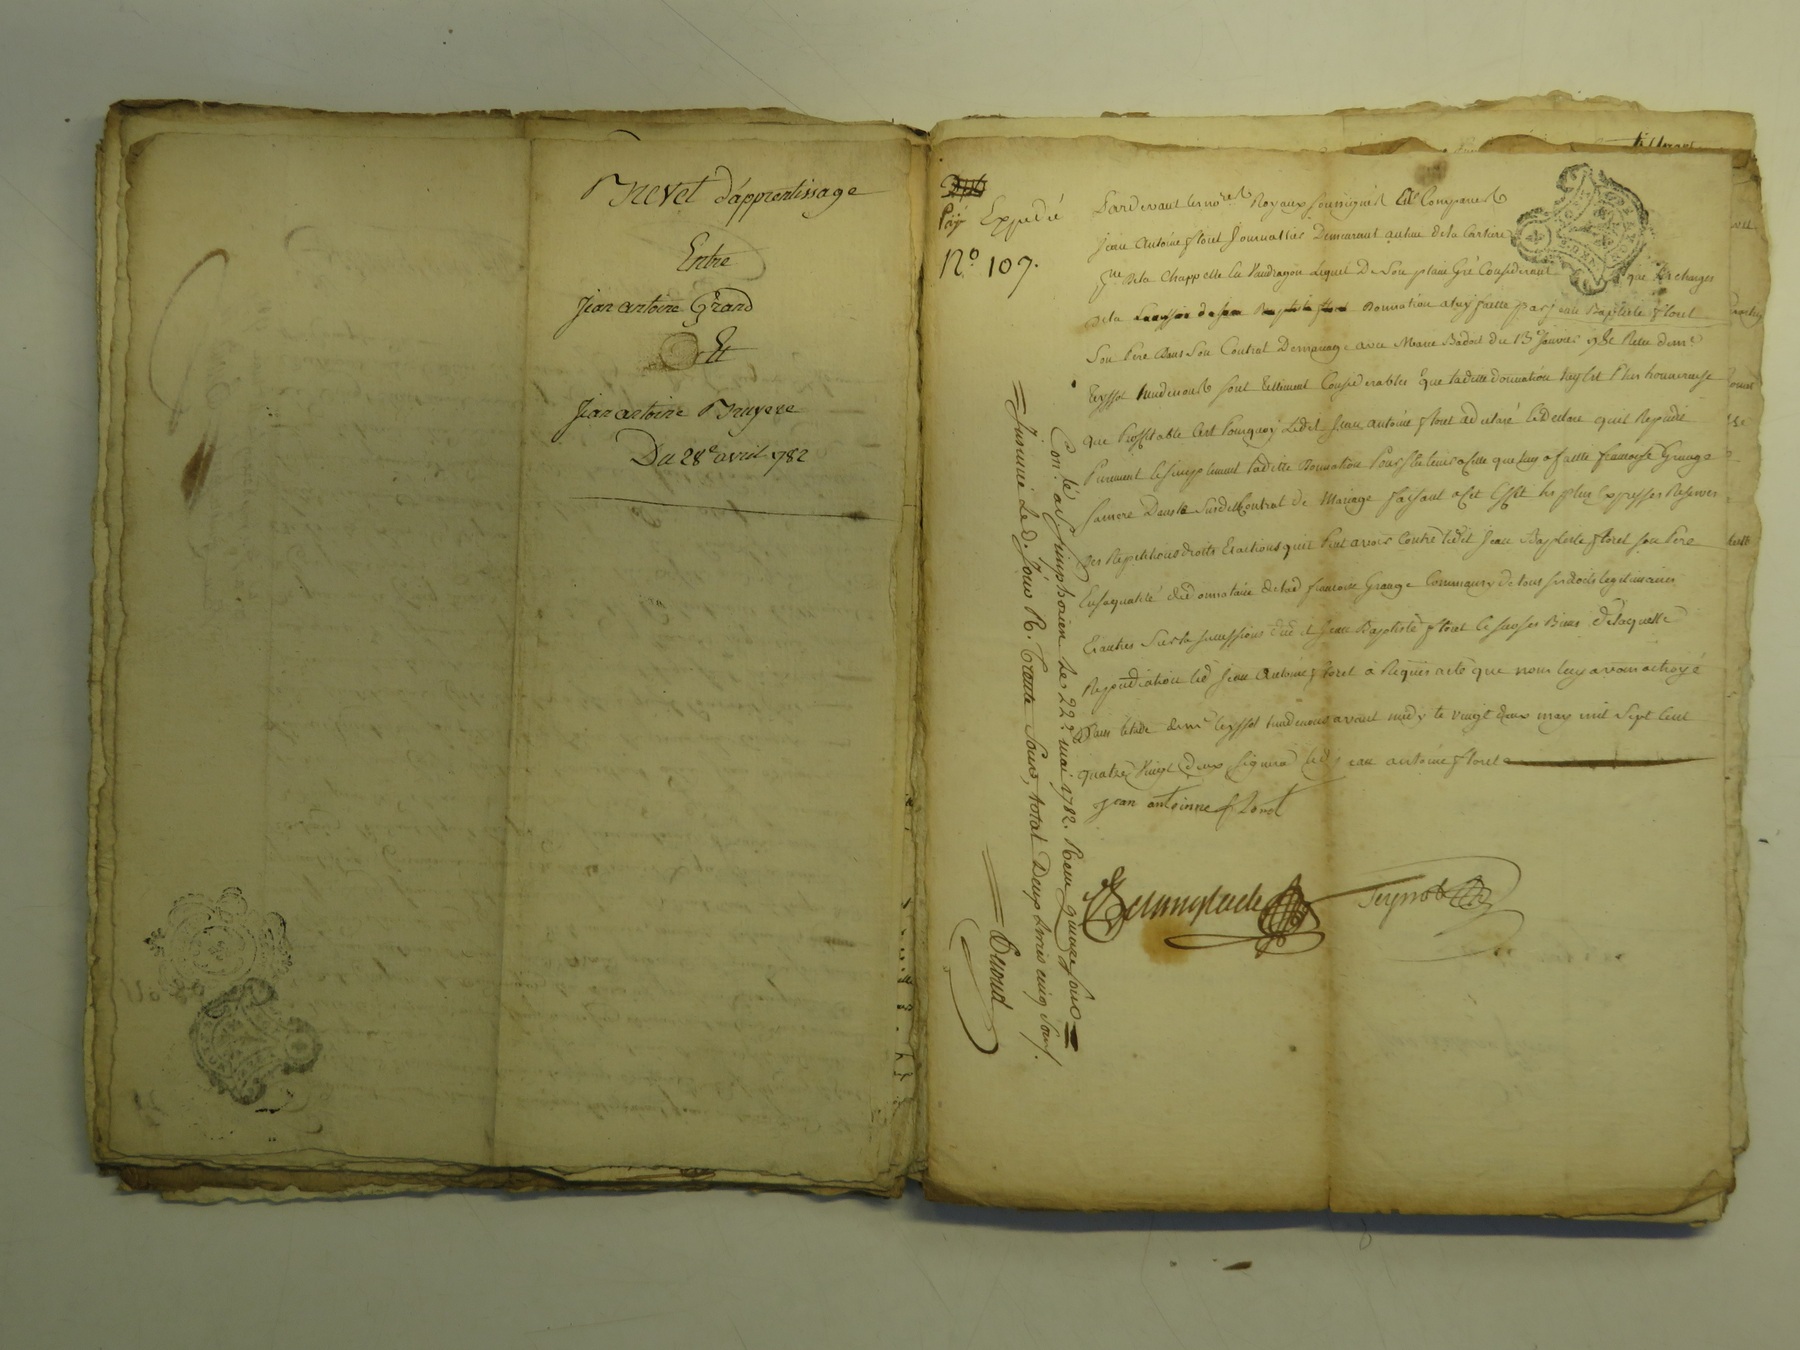 Brevet d'apprentissage
Entre
Jean antoine Grand
Et
Jean antoine Bruyere
Du 28e avril 782
Payé Expedié
No 107.
Pardevant les nores Royaux soussignés est Comparut
Jean Antoine floret Journallier Demeurant au lieu de la
de la Chappelle En Vaudragon Lequel De son plain Gré Considerant que les charges
de la donnation a luy faitte par jean Baptiste floret
son Pere Dans son Contrat De mariage avec Marie Badoil du 13e Janvier 780 Recu de me
teyssot L'un de nous sont tellement Considerables que ladite donnation luy Est Plus honnereuse
que Proffitable C'est Pourquoy Ledit Jean Antoine floret a declaré et declare quil Repudie
Purement et simplement ladite Donnation Pour s'En tenir a Celle que luy a faitte francoise Grange
sa mere Dans le susdit Contrat de Mariage faisant a Cet Effet les plus Expresses Reserves
des Repetitions droits Et actions quil Peut avoir Contre ledit Jean Baptiste floret son Pere
En sa qualité de donnataire de lad francoise Grange Comme aussy de tous ses droits legitimaires
Et autres sur la succession dudit Jean Baptiste floret et sur ses Biens de laquelle
Repudiation led Jean Antoine floret à Requis acte que nous luy avons octroyé
Dans l'etude de me teyssot l'un de nous avant midy le vingt deux may mil sept Cent
quatre Vingt deux signera led jean antoine floret
jean antoinne floret
Conlé a st simphorien le 22e mai 1782. Recu quinze sous
Insinué Led. Jour R. trente sous, total Deux livres cinq sous.